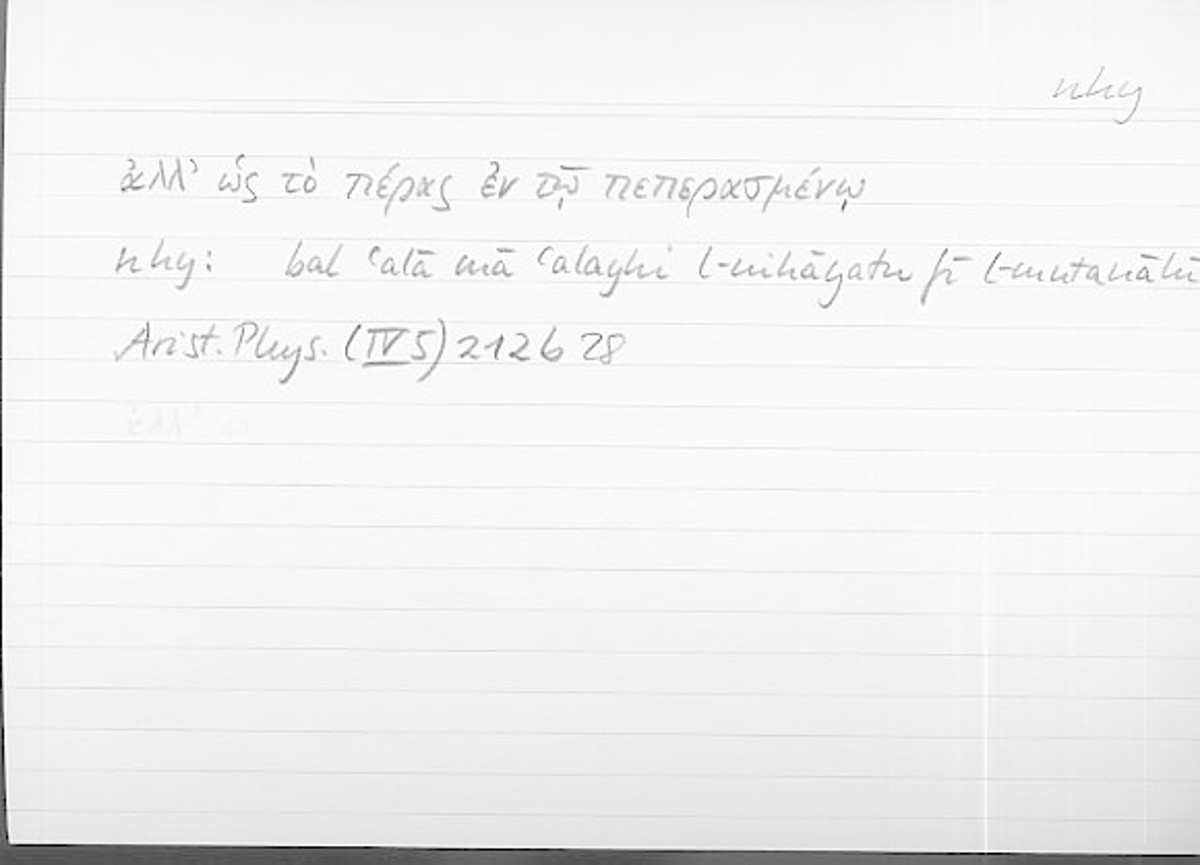 nhy
ἀλλ' ὡς τὸ πέρας ἐν τῷ πεπερασμένῳ
nhy: bal ʿalā mā ʿalayhi l-nihāyatu fī l-mutanāhī
Arist. Phys. (IV 5) 212 b 28
ἀλλ' ω